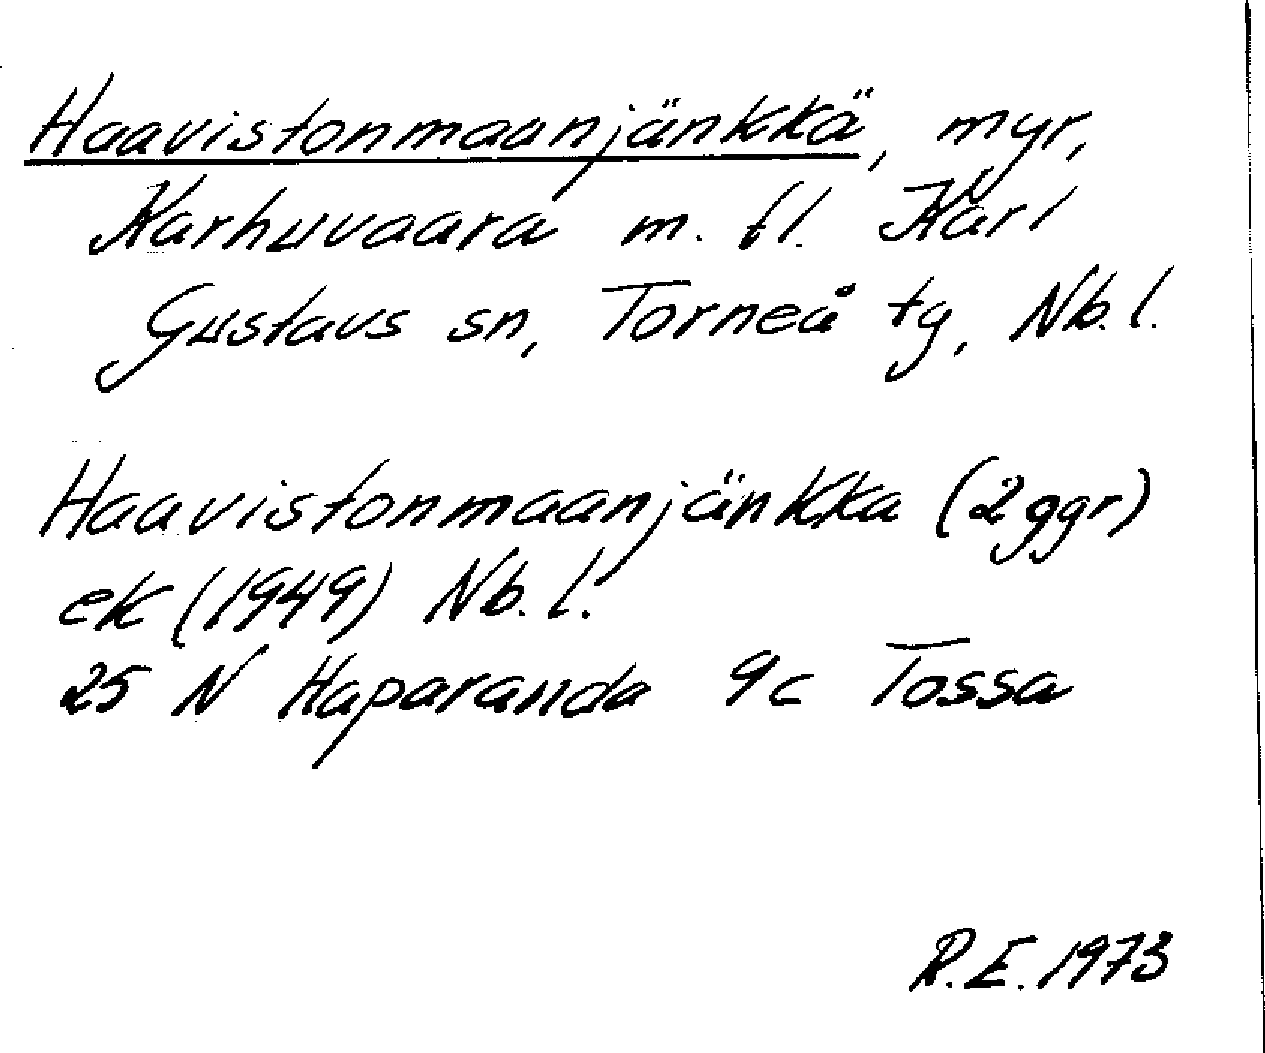 Haavistonmaanjänkkä, myr,
Karhuvaara m. fl. Karl
Gustavs sn, Torneå tg, Nb. l.
Haavistonmaanjänkka (2 ggr)
ek (1949) Nb. l.
25 N Haparanda 9c Tossa
R. E. 1973